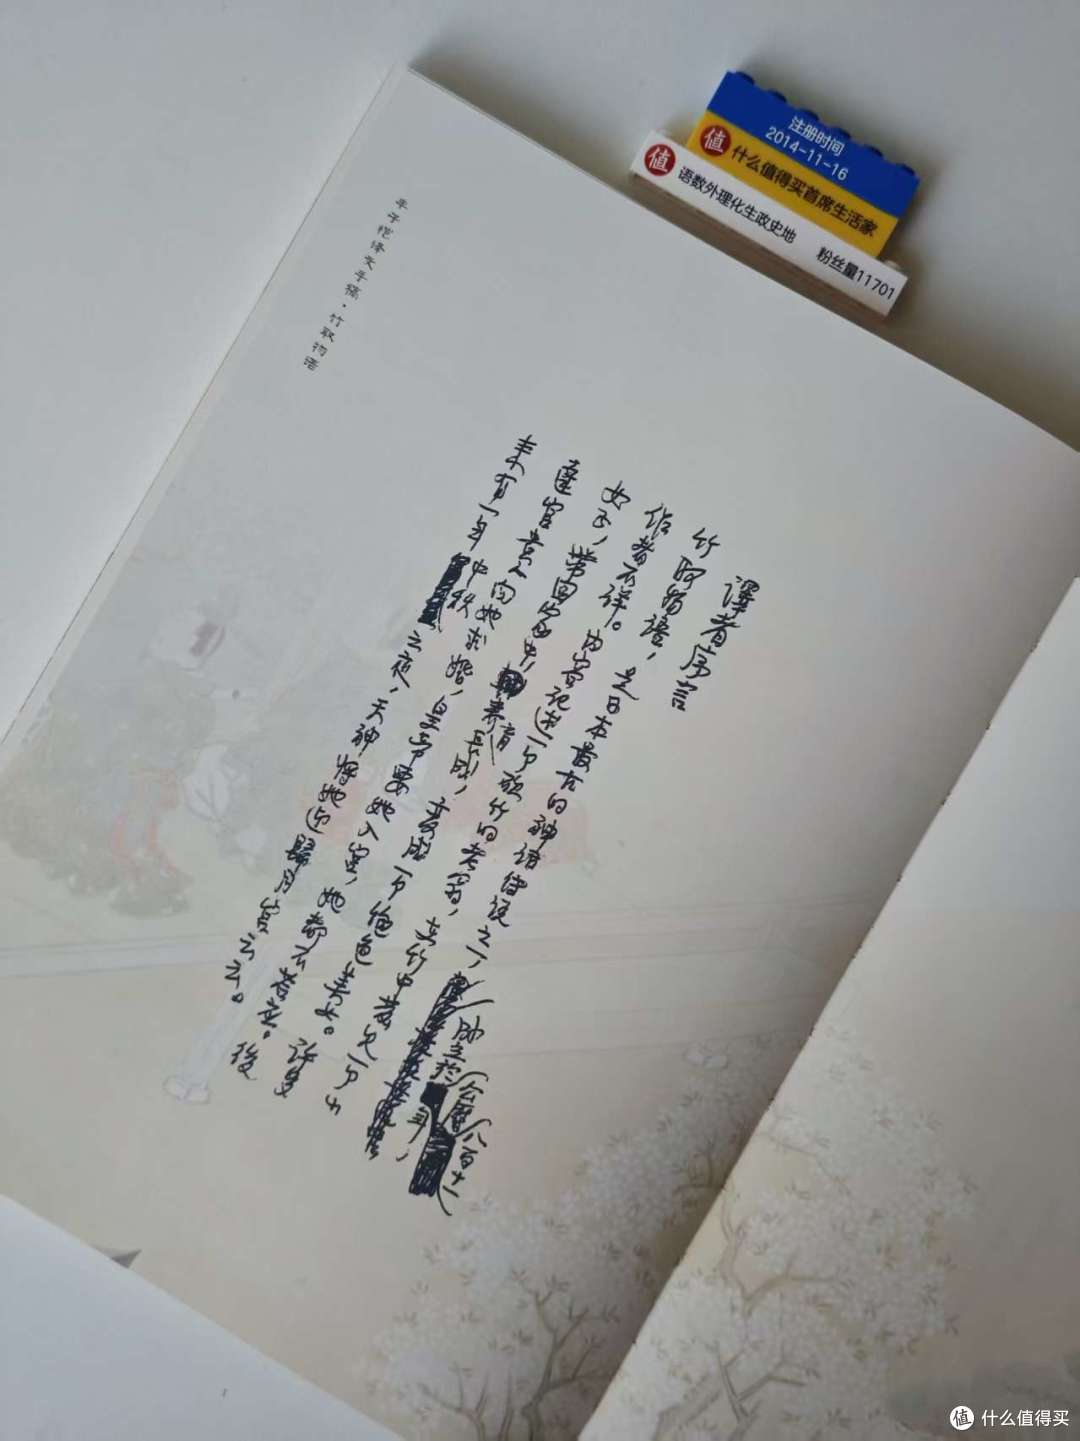 注册时间
2014-11-16
值 什么值得买首席生活家
值 语数外理化生政史地 粉丝量11701
丰子恺译文手稿·竹取物语
譯者序言
竹取物語，是日本最古的神话傳说之一，成立於公曆八百十一年，
作者不详。内容记述一个砍竹的老翁，在竹中发见一个小
女子，带回家中，养育长成，变成一个绝色美女。许多
達官贵人向她求婚，皇帝要她入宫，她都不答应。後
来有一年中秋之夜，天神将她迎歸月宫云云。
值 什么值得买